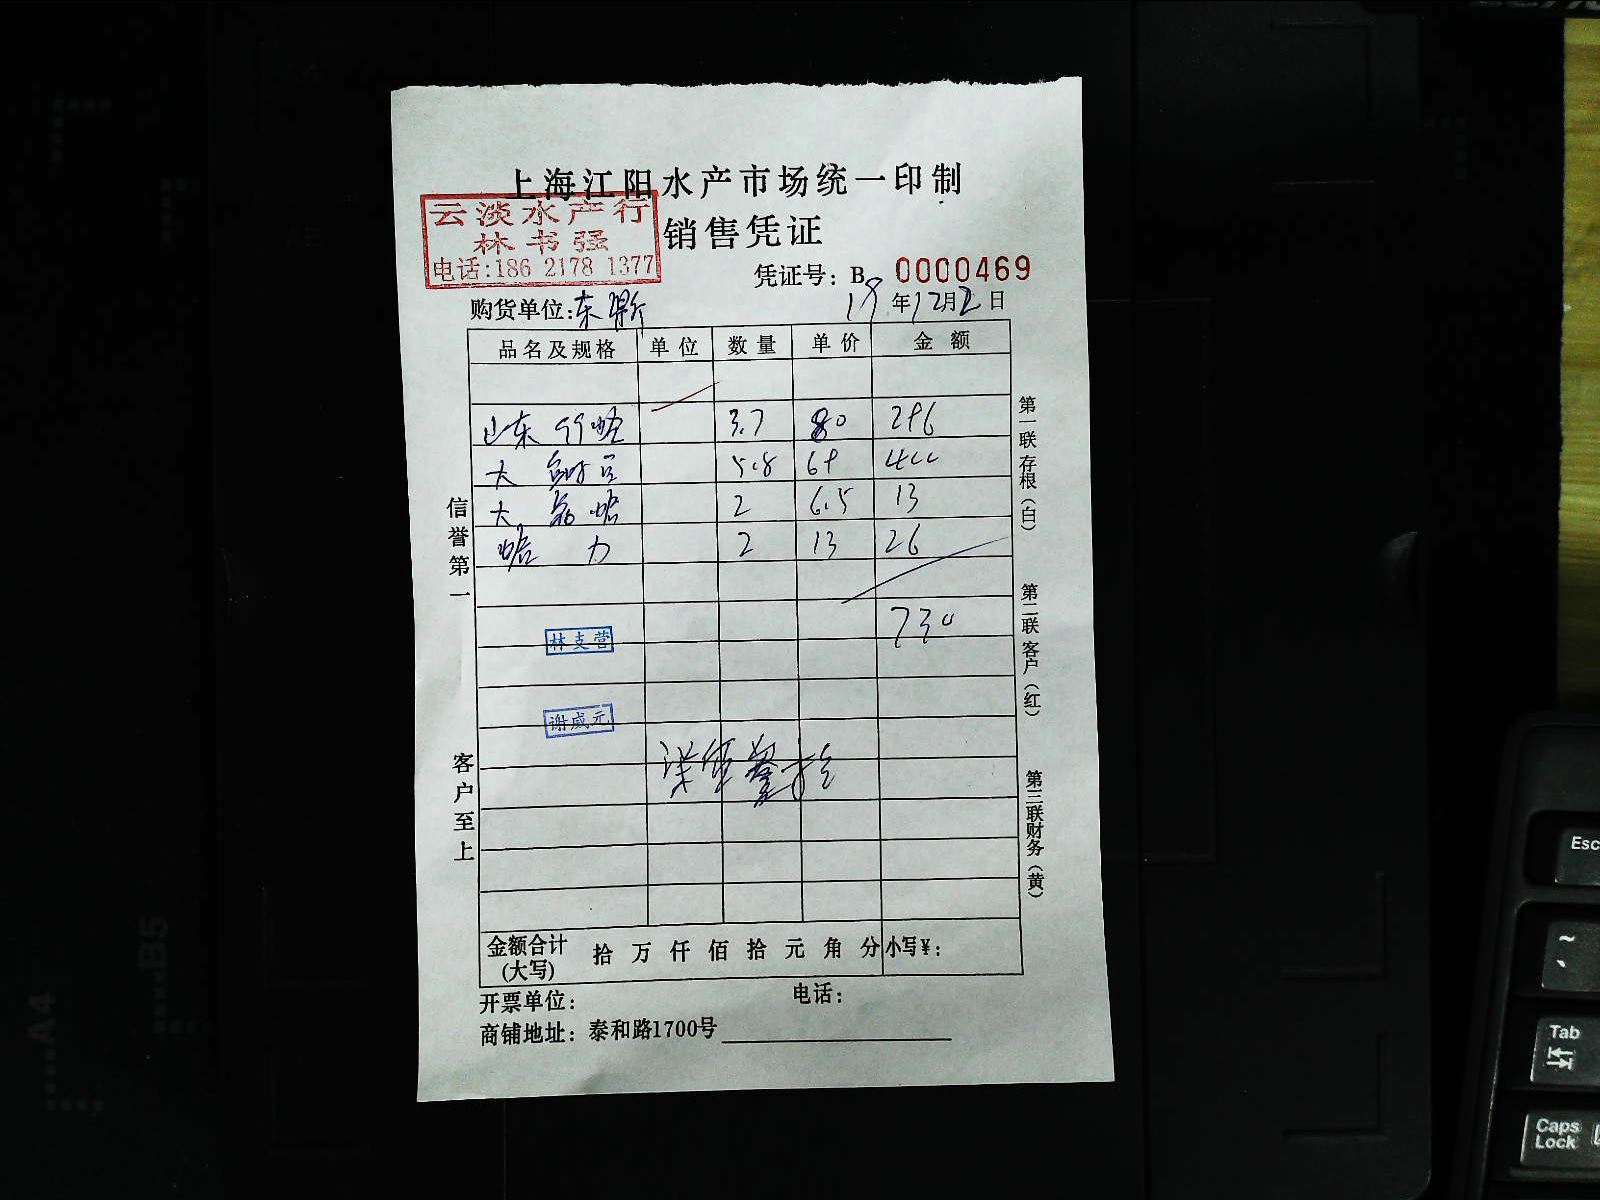 上海江阳水产市场统一印制
销售凭证
云淡水产行
林书强
电话:186 2178 1377
凭证号: B 0000469
购货单位: 东
19年12月2日
品名及规格 单位 数量 单价 金额
山东 3.7 80 296
大 5.8 69 400
大 2 6.5 13
2 13 26
730
林支营
谢威元
信誉第一
客户至上
第一联 存根(白)
第二联 客户(红)
第三联 财务(黄)
金额合计(大写) 拾 万 仟 佰 拾 元 角 分 小写¥:
开票单位: 电话:
商铺地址: 泰和路1700号
A4
B5
Esc
~
Tab
Caps Lock